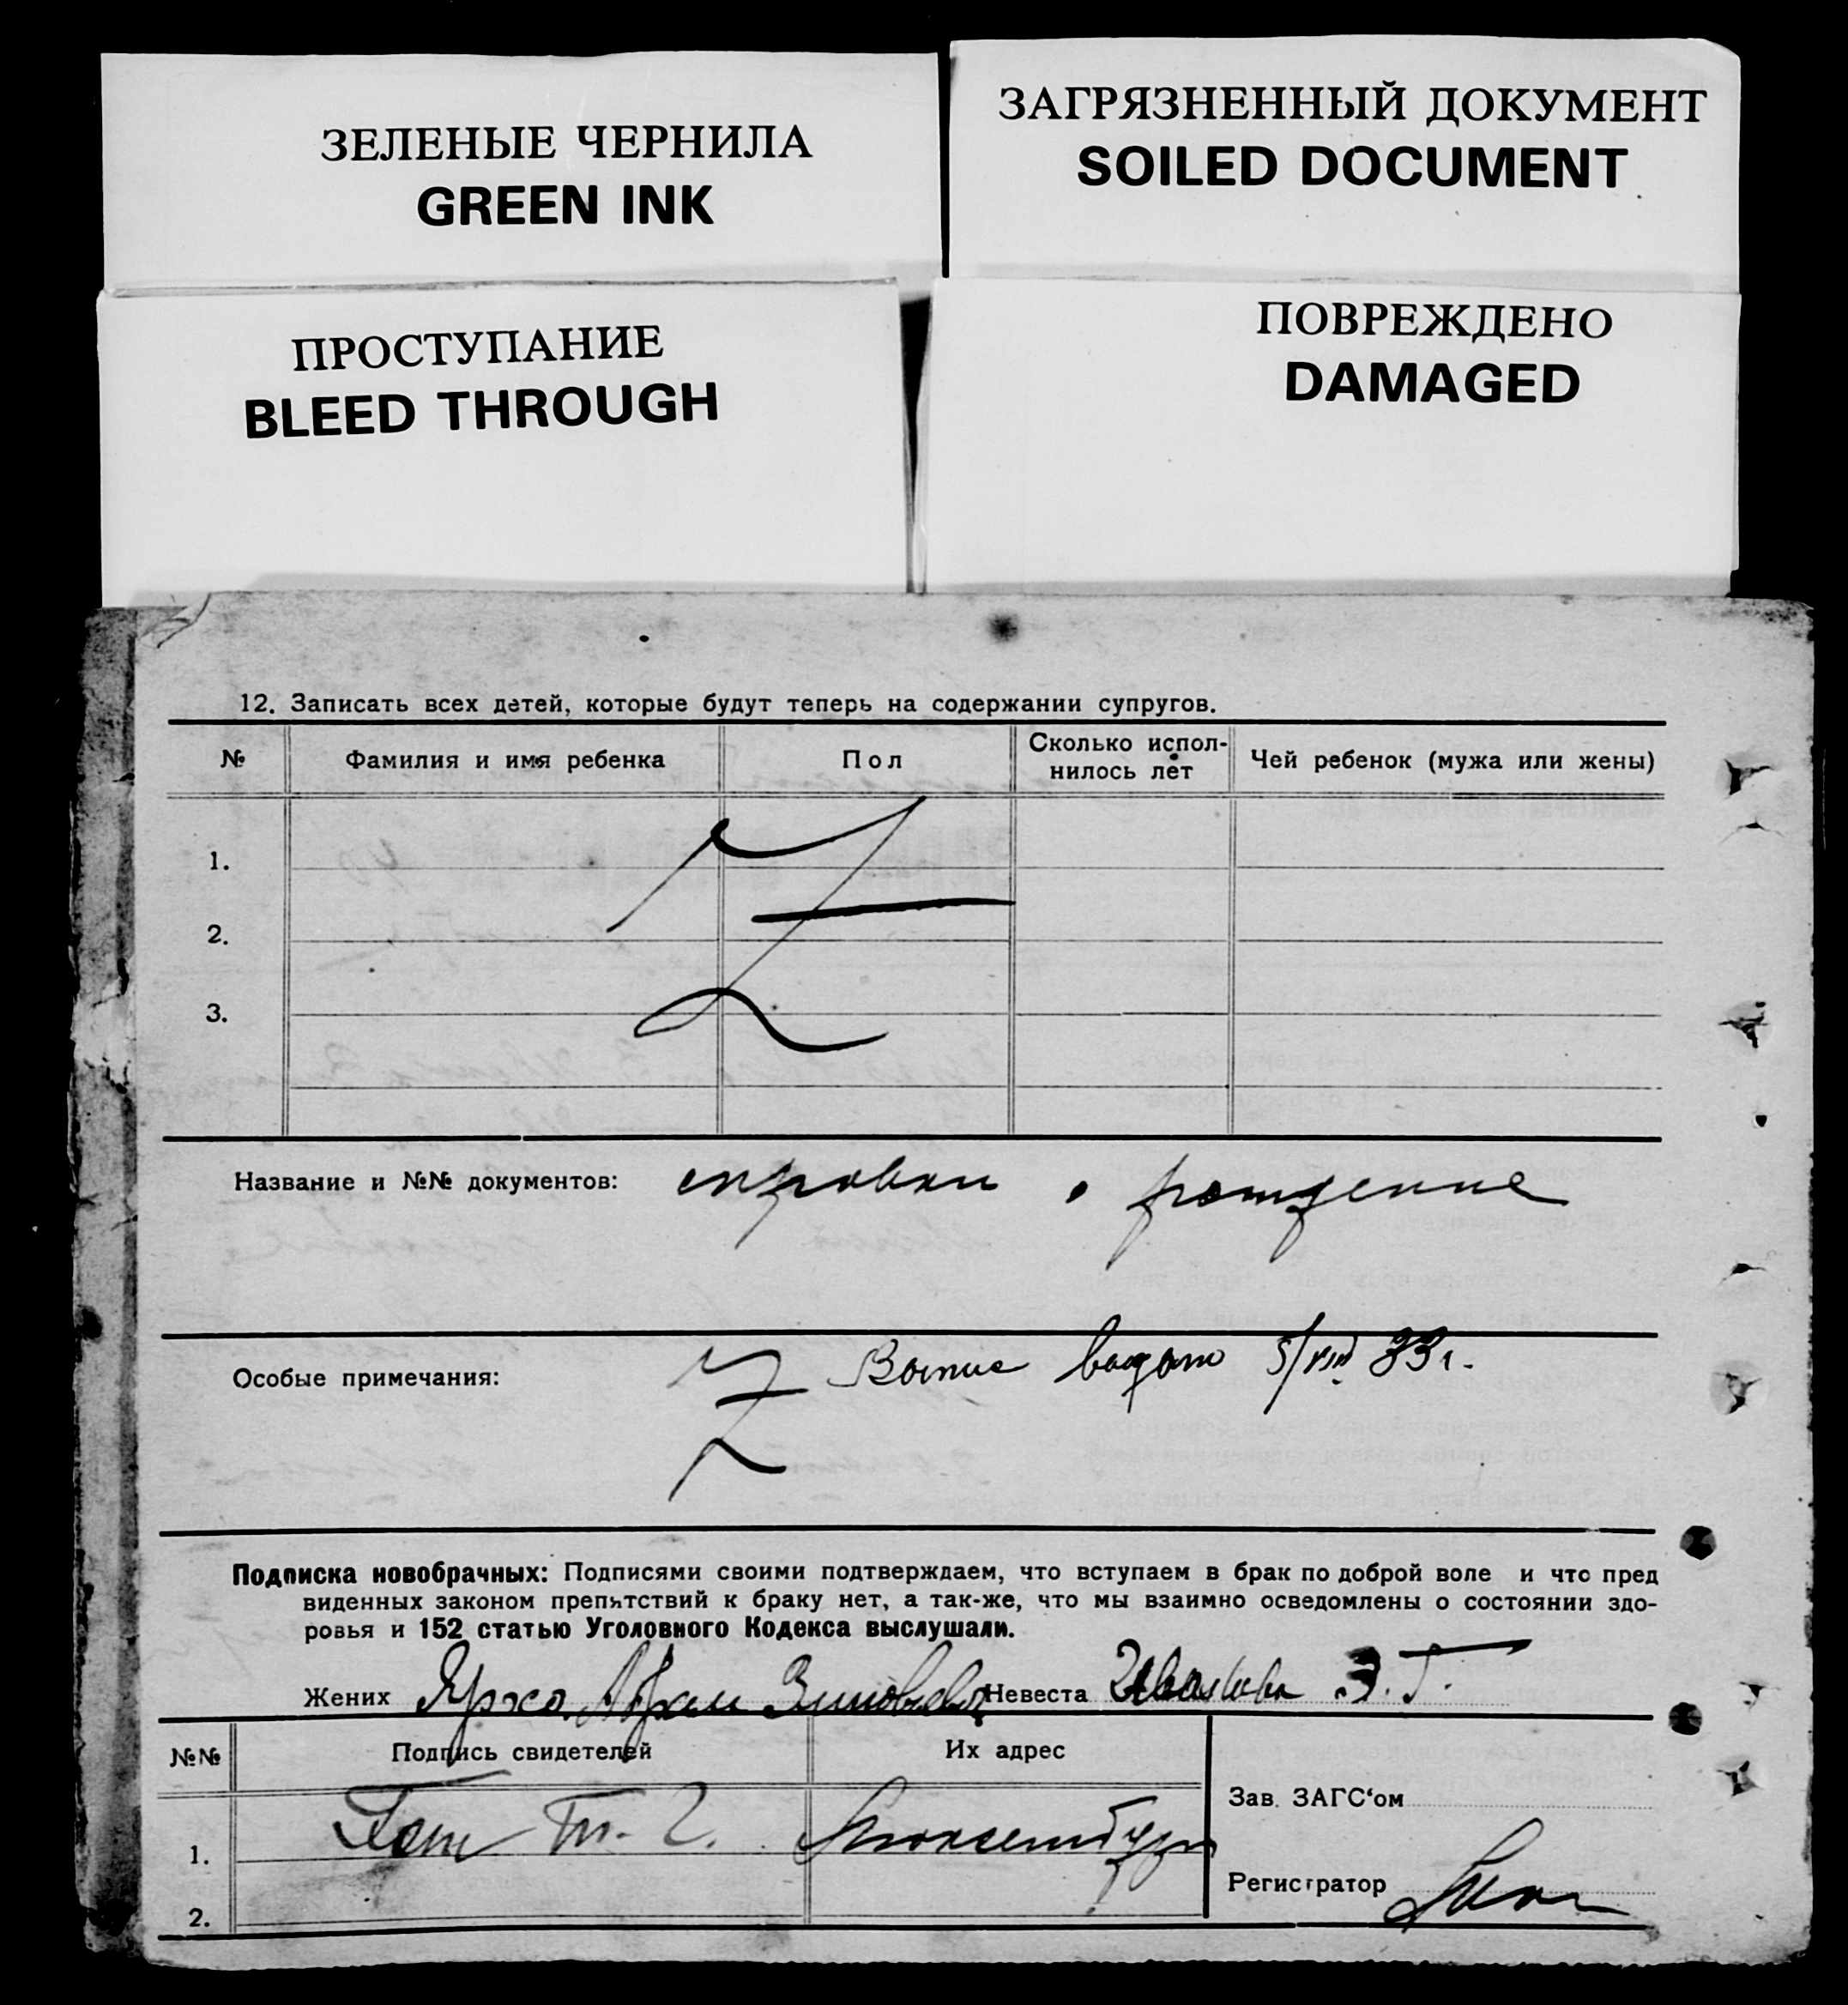 ЗЕЛЕНЫЕ ЧЕРНИЛА
GREEN INK
ЗАГРЯЗНЕННЫЙ ДОКУМЕНТ
SOILED DOCUMENT
ПРОСТУПАНИЕ
BLEED THROUGH
ПОВРЕЖДЕНО
DAMAGED
12. Записать всех детей, которые будут теперь на содержании супругов.
№ Фамилия и имя ребенка Пол Сколько испол-нилось лет Чей ребенок (мужа или жены)
1.
2.
3.
Название и №№ документов: справки о рождение
Особые примечания: Z выдано 5/VIII 33 г.
Подписка новобрачных: Подписями своими подтверждаем, что вступаем в брак по доброй воле и что пред
виденных законом препятствий к браку нет, а так-же, что мы взаимно осведомлены о состоянии здо-
ровья и 152 статью Уголовного Кодекса выслушали.
Жених Абрам Зиновьевич Невеста З. Г.
№№ Подпись свидетелей Их адрес
Зав. ЗАГС'ом
1. Т. Г. Люксембург
Регистратор
2.